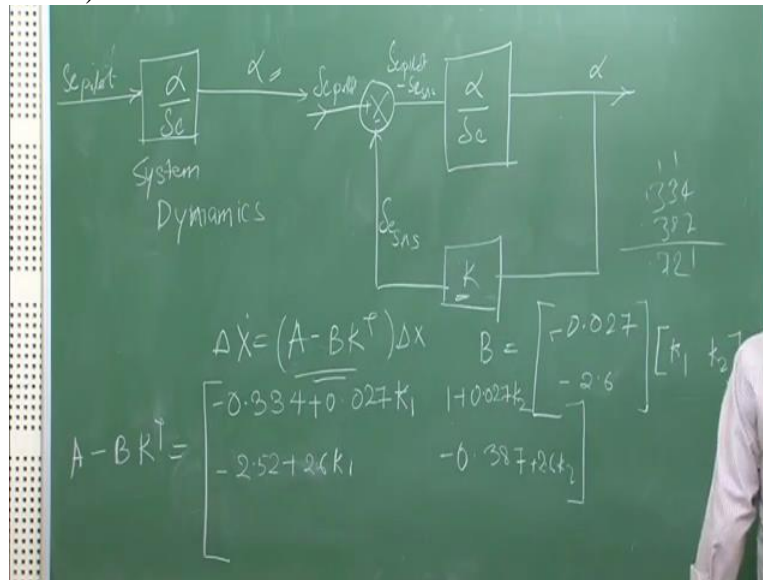 δe pilot
α
δe
α =
System
Dynamics
δe pilot
+
-
δe pilot
- δe sas
α
δe
α
δe sas
K
1 1
.334
.387
.721
ΔẊ = (A - BKᵀ) ΔX
B = [-0.027
-2.6] [k₁ k₂]
A - BKᵀ = [-0.334+0.027K₁ 1+0.027k₂
-2.52+2.6K₁ -0.387+2.6k₂]